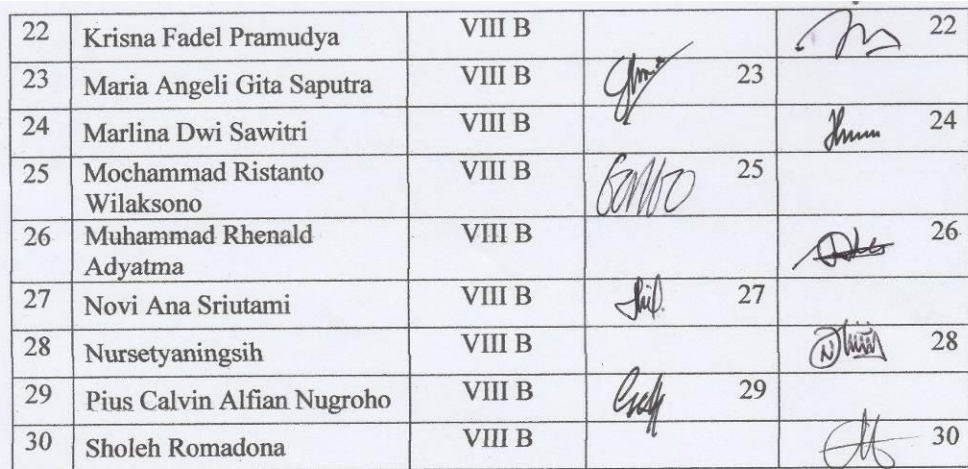 22 Krisna Fadel Pramudya VIII B 22
23 Maria Angeli Gita Saputra VIII B 23
24 Marlina Dwi Sawitri VIII B 24
25 Mochammad Ristanto VIII B 25
Wilaksono
26 Muhammad Rhenald VIII B 26
Adyatma
27 Novi Ana Sriutami VIII B 27
28 Nursetyaningsih VIII B 28
29 Pius Calvin Alfian Nugroho VIII B 29
30 Sholeh Romadona VIII B 30